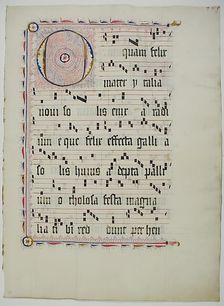 O quam felix
mater ytalia
noui so lis eius a radi
um e que felix effecta galli a
so lis huius a depta palli
um o tholosa festa magna
lia ti bi red dunt per hen